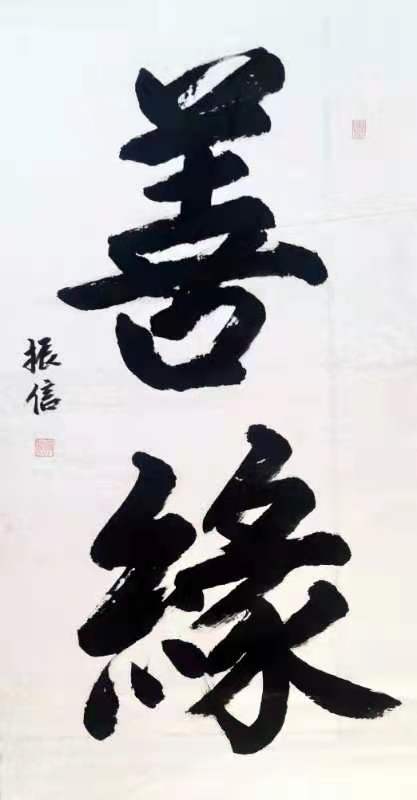 善
緣
振信